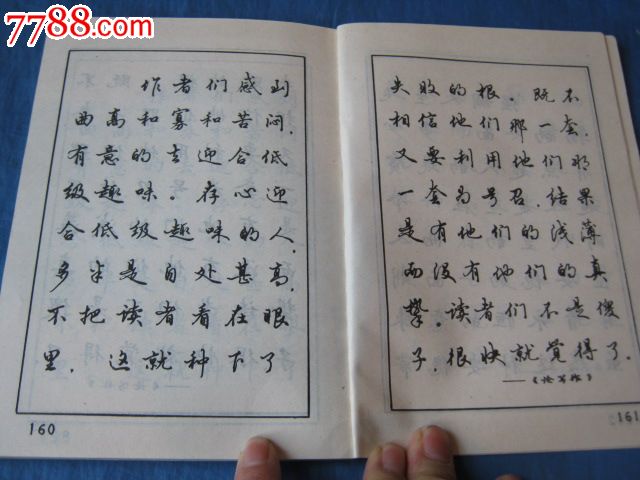 7788.com
作者们感到
曲高和寡和苦闷，
有意的去迎合低
级趣味。存心迎
合低级趣味的人，
多半是自处甚高，
不把读者看在眼
里。这就种下了
160
失败的根。既不
相信他们那一套，
又要利用他们那
一套为号召，结果
是有他们的浅薄
而没有他们的真
挚。读者们不是傻
子，很快就觉得了。
——《论写作》
161